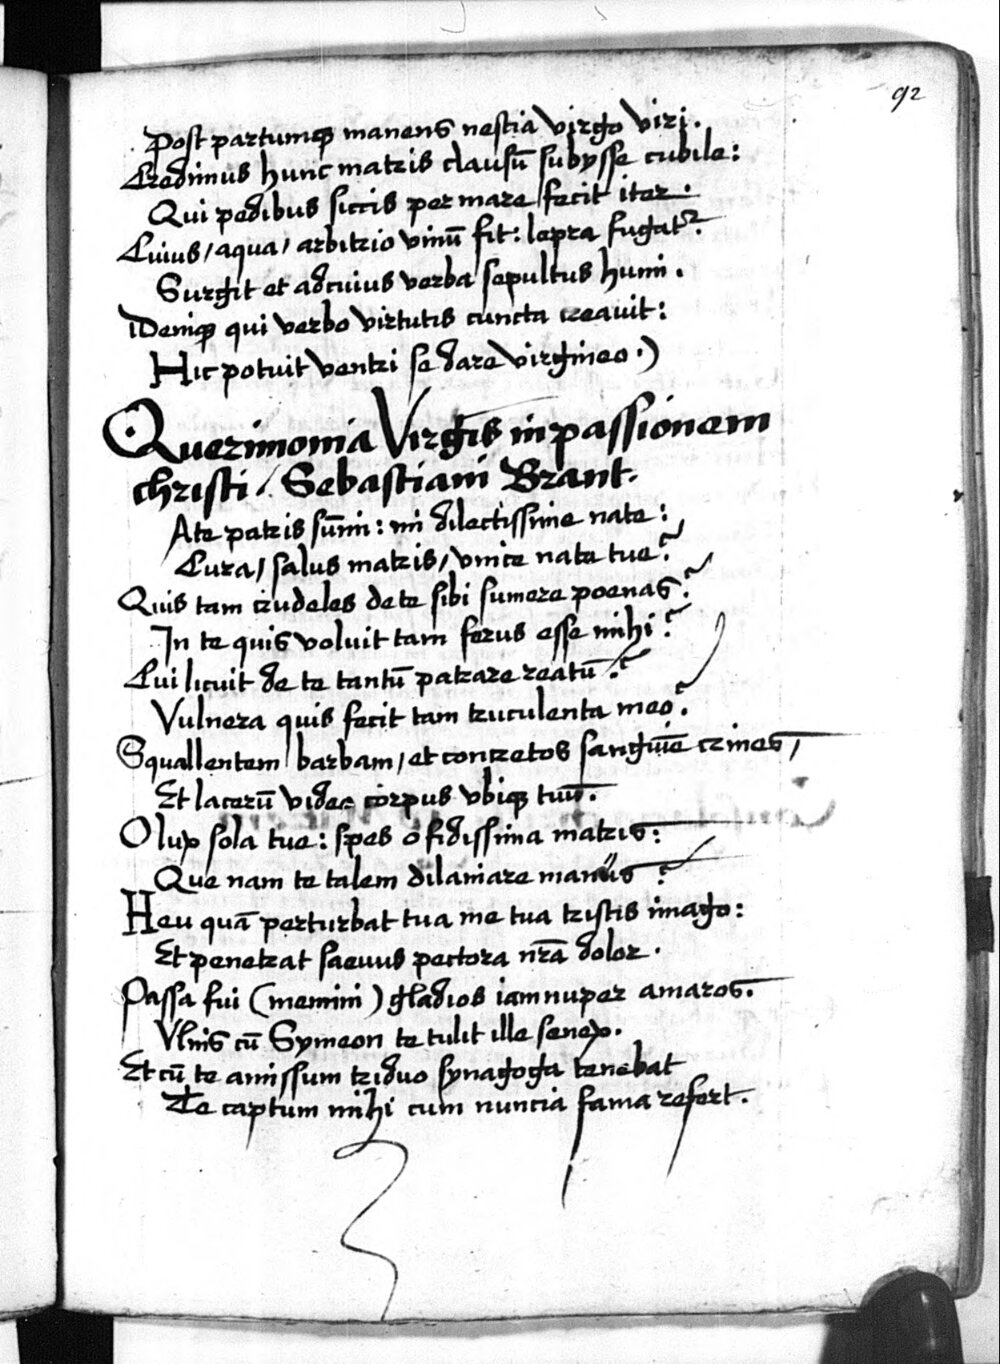 92
Post partumqꝫ manens nestia virgo viri.
Credimus hunc matris clausū subysse cubile:
Qui pedibus siccis per mare fecit iter.
Cuius/aqua/arbitrio vinū fit: lepra fugatʳ.
Surgit et ad cuius verba sepultus humi.
Deniqꝫ qui verbo virtutis cuncta creauit:
Hic potuit ventri se dare virgineo.)
Querimonia Virgis in passionem
christi/. Sebastiani Brant.
Ate patris sūmi: mi dilectissime nate:
Cura/salus matris/vnice nate tue?
Quis tam crudeles de te sibi sumere poenas?
In te quis voluit tam ferus esse mihi?
Cui licuit de te tantū patrare reatū?
Vulnera quis fecit tam truculenta meo?
Squallentem barbam/et concretos sanguiē crines/
Et lacerū videe corpus vbiqꝫ tuū.
O lux sola tue: spes o fidissima matris:
Que nam te talem dilaniare manus?
Heu quā perturbat tua me tua tristis imago:
Et penetrat saeuus pectora nr̄a dolor.
Passa fui (memini) gladios iamnuper amaros.
Vlnis cū Symeon te tulit ille senex.
Et cū te amissum triduo synagoga tenebat
Te captum mihi cum nuncia fama refert.